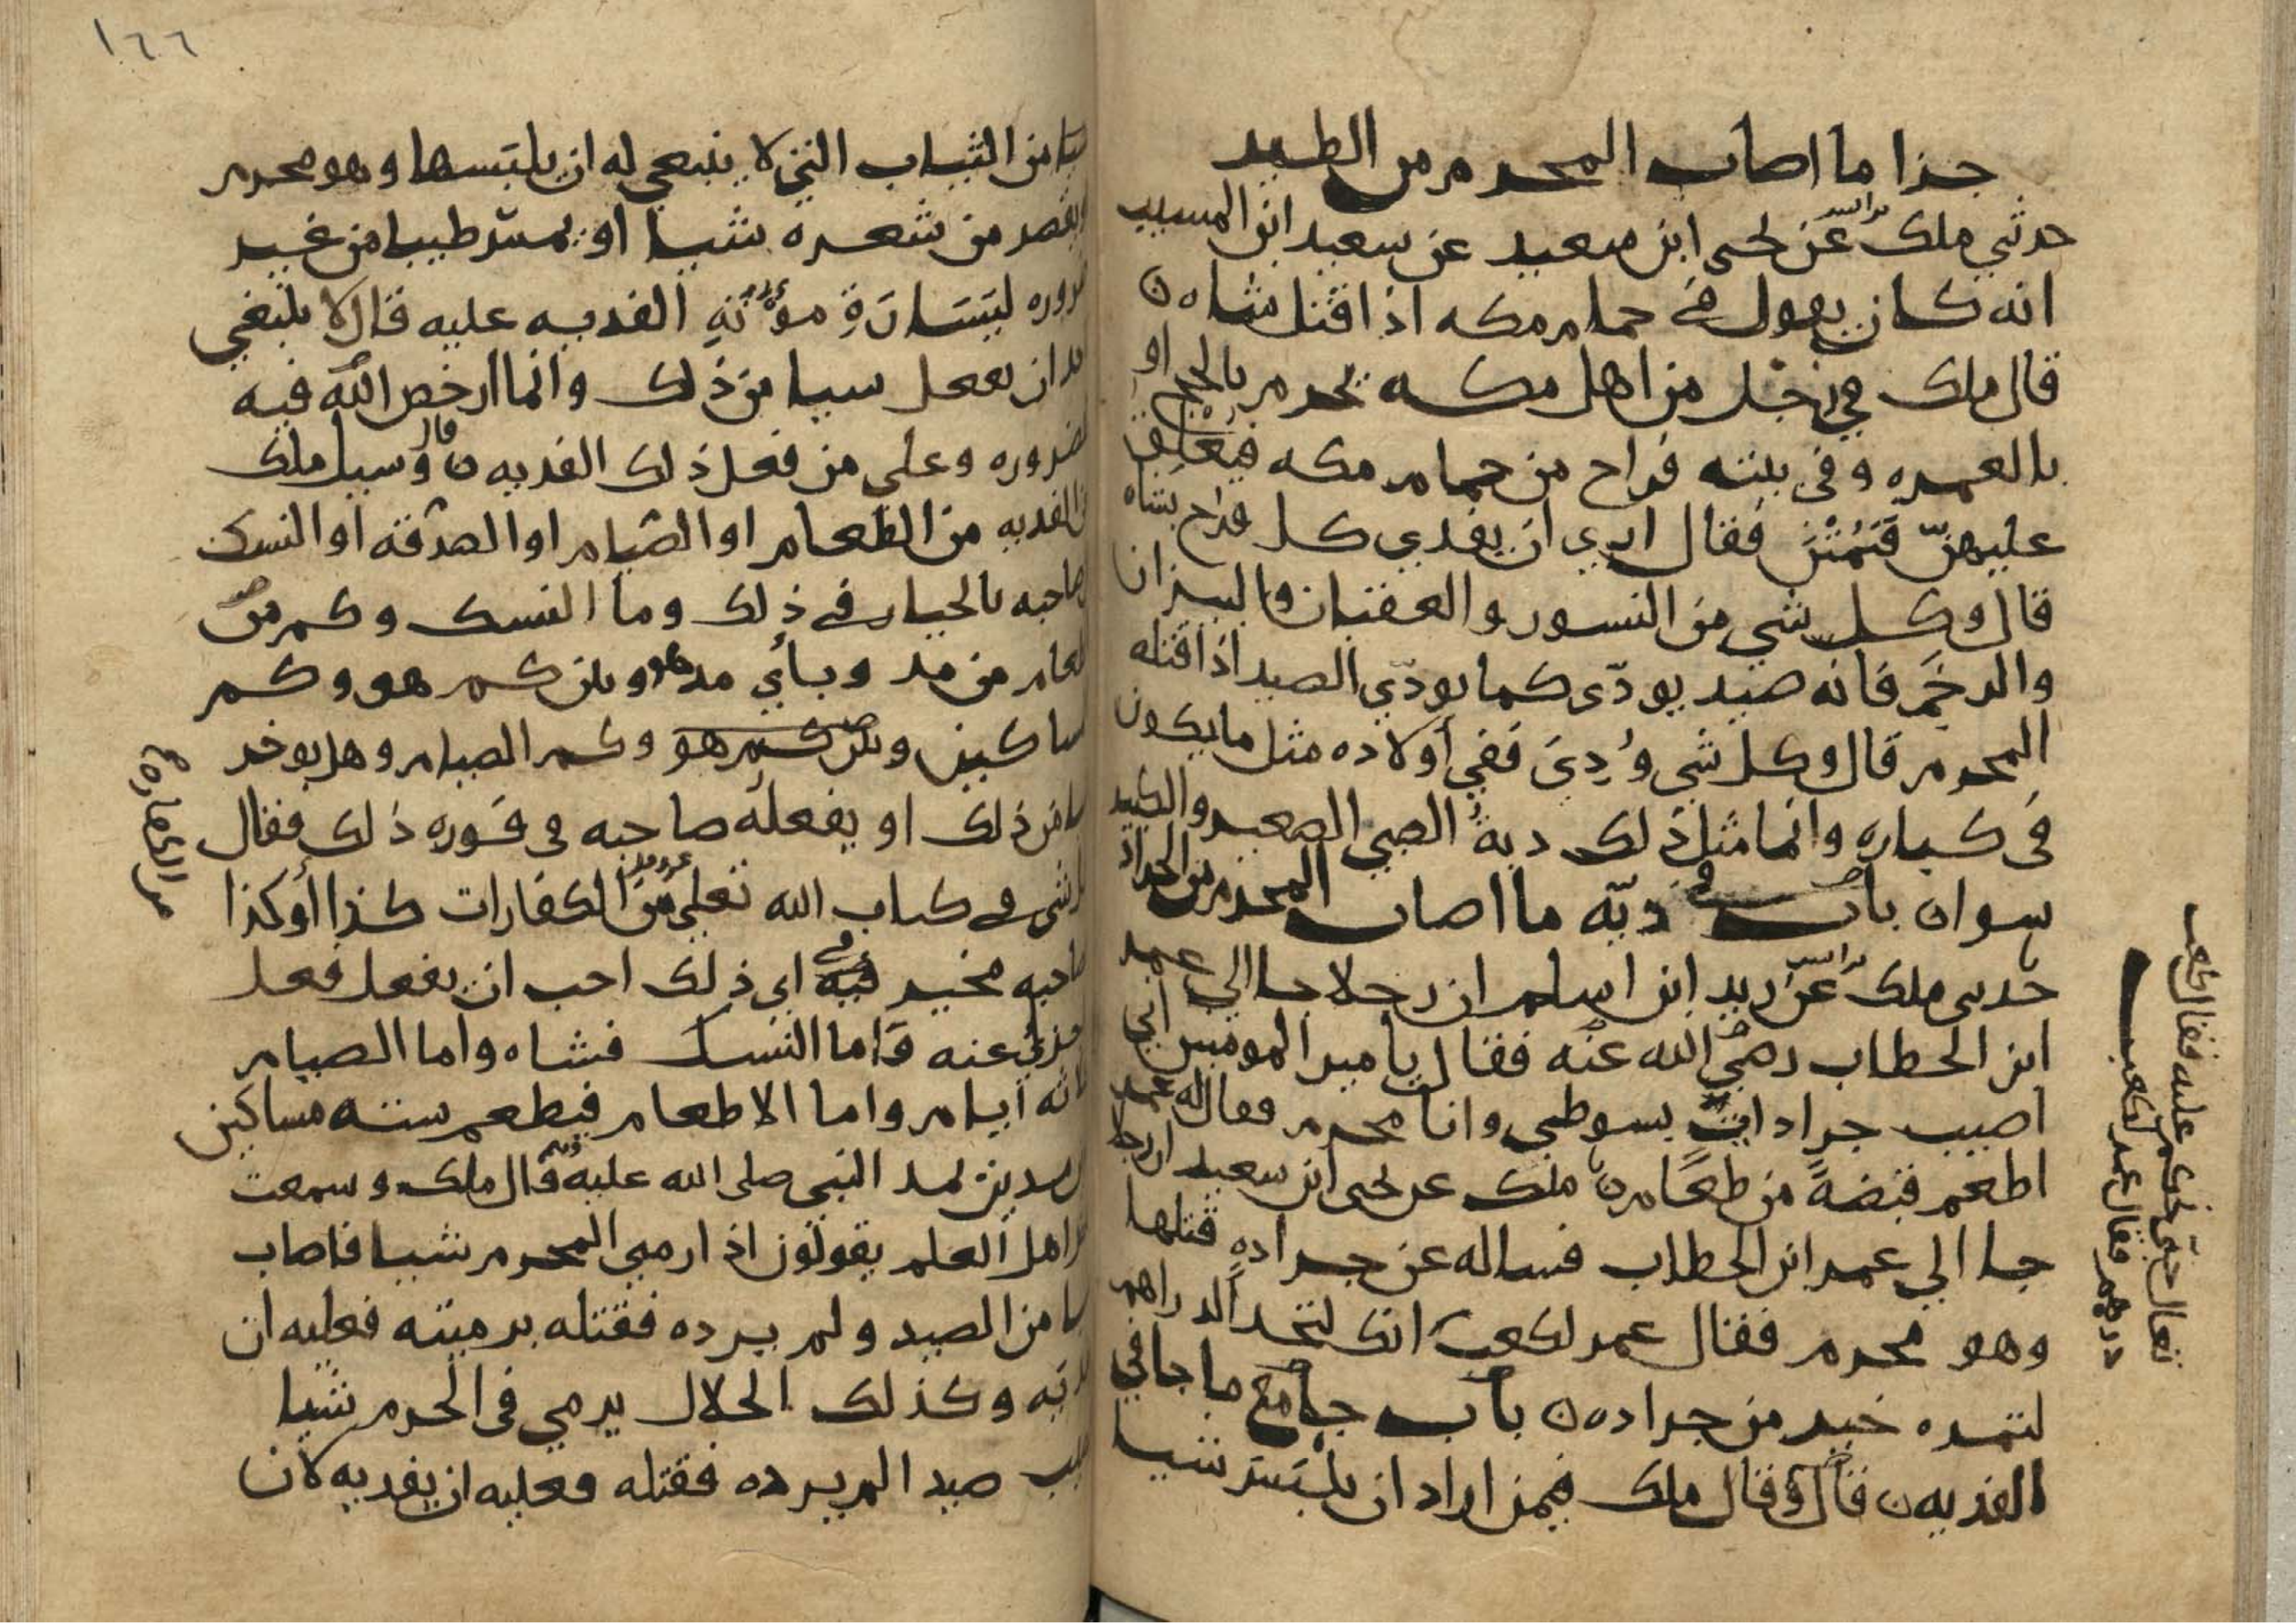 جزا ما اصاب المحرم من الطير
حدثني ملك عن يحيى ابن سعيد عن سعيد ابن المسيب
انه كان يقول في حمام مكه اذا قتل شاه ن
قال ملك في رجل من اهل مكه يحرم بالحج او
بالعمره وفي بيته فراخ من حمام مكه فيغلق
عليهنّ فَيَمُتْنَ فقال اري ان يفدي كل فراخ بشاه
قال وكل شي من النسور والعقبان والبيزان
والرخَم فانه صيد يودّى كما يودّي الصيد اذا قتله
المحرم قال وكل شي وُدِيَ ففي أولاده مثل ما يكون
في كباره وانما مثل ذلك ديةُ الصبي الصغير والكبير
سوا ن باب في ديّه ما اصاب المحرم من الجراد
حدثني ملك عن زيد ابن اسلم ان رجلا جا الي عمر
ابن الخطاب رضي الله عنه فقال يا مير المومنين اني
اصيب جرادات بسوطي وانا محرم فقال له عمر
اطعم قبضةً من طعام ن ملك عن يحيى ابن سعيد ان رجلا
جا الي عمر ابن الخطاب فساله عن جراده قتلها
وهو محرم فقال عمر لكعب انك لتجد الدراهم
لتمره خير من جراده ن باب جامع ما جا في
الفديه ن قال وقال ملك فيمن اراد ان يلبس شيا
تعال حتى نحكم عليه فقال كعب
درهم فقال عمر لكعب
١٦٦
من الثياب التي لا ينبغي له ان يلبسها وهو محرم
او يقصر من شعره شيا او يمس طيبا من غير
ضروره ليَسَارَةِ مؤُنَةِ الفديه عليه قال لا ينبغي
ان يفعل شيا من ذلك وانما ارخص الله فيه
للضروره وعلى من فعل ذلك الفديه ن قال وسيل ملك
عن الفديه من الطعام او الصيام او الصدقه او النسك
صاحبه بالخيار في ذلك وما النسك وكم من
الطعام من مد وباي مد هو ولمن كم هو وكم
مساكين وكم الصيام وهل يوخر
شيا من ذلك او يفعله صاحبه في فوره ذلك فقال
كل شي في كتاب الله تعلى من الكفارات كذا أو كذا
صاحبه مخير في اي ذلك احب ان يفعل فعل
عنه وَاما النسك فشاه واما الصيام
ايام واما الاطعام فيطعم سته مساكين
مدين بمد النبي صلى الله عليه وسلم قال ملك وسمعت
اهل العلم يقولون اذا رمي المحرم شيا فاصاب
شيا من الصيد ولم يرده فقتله برميته فعليه ان
يفديه وكذلك الحلال يرمي في الحرم شيا
فيصيب صيدا لم يرده فقتله فعليه ان يفديه لان